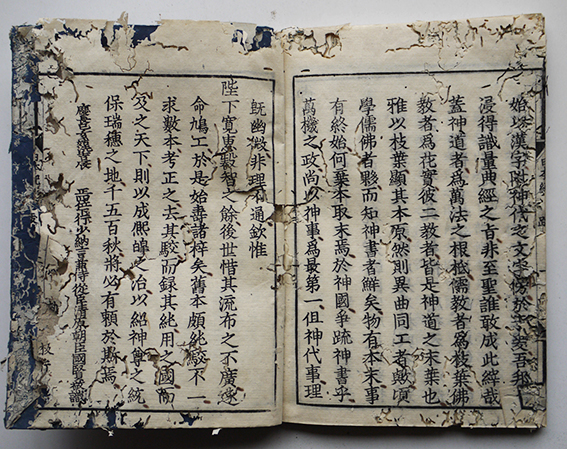 始以漢字附神代之文字傍於于
漫得識量典經之旨非至聖誰敢成此絳哉
蓋神道者為萬法之根柢儒教者為枝葉佛
教者為花實彼二教者皆是神道之末葉也
雅以枝葉顯其本原然則異曲同工者歟頃
學儒佛者夥而知神書者鮮矣物有本末事
有終始何棄本取末焉於神國爭疏神書乎
萬機之政尚以神事為最第一但神代事理
既幽微非理不通欽惟
陛下寬惠叡智之餘後世惜其流布之不廣遂
命鳩工於是始壽諸梓矣舊本頗紕駁不一
求數本考正之去其駁而錄其純用之國而
及之天下則以成熙皡之治以紹神尊之統
保瑞穗之地千五百秋將必有賴於斯焉
慶長 少納言兼侍從臣清原朝臣國賢敬識